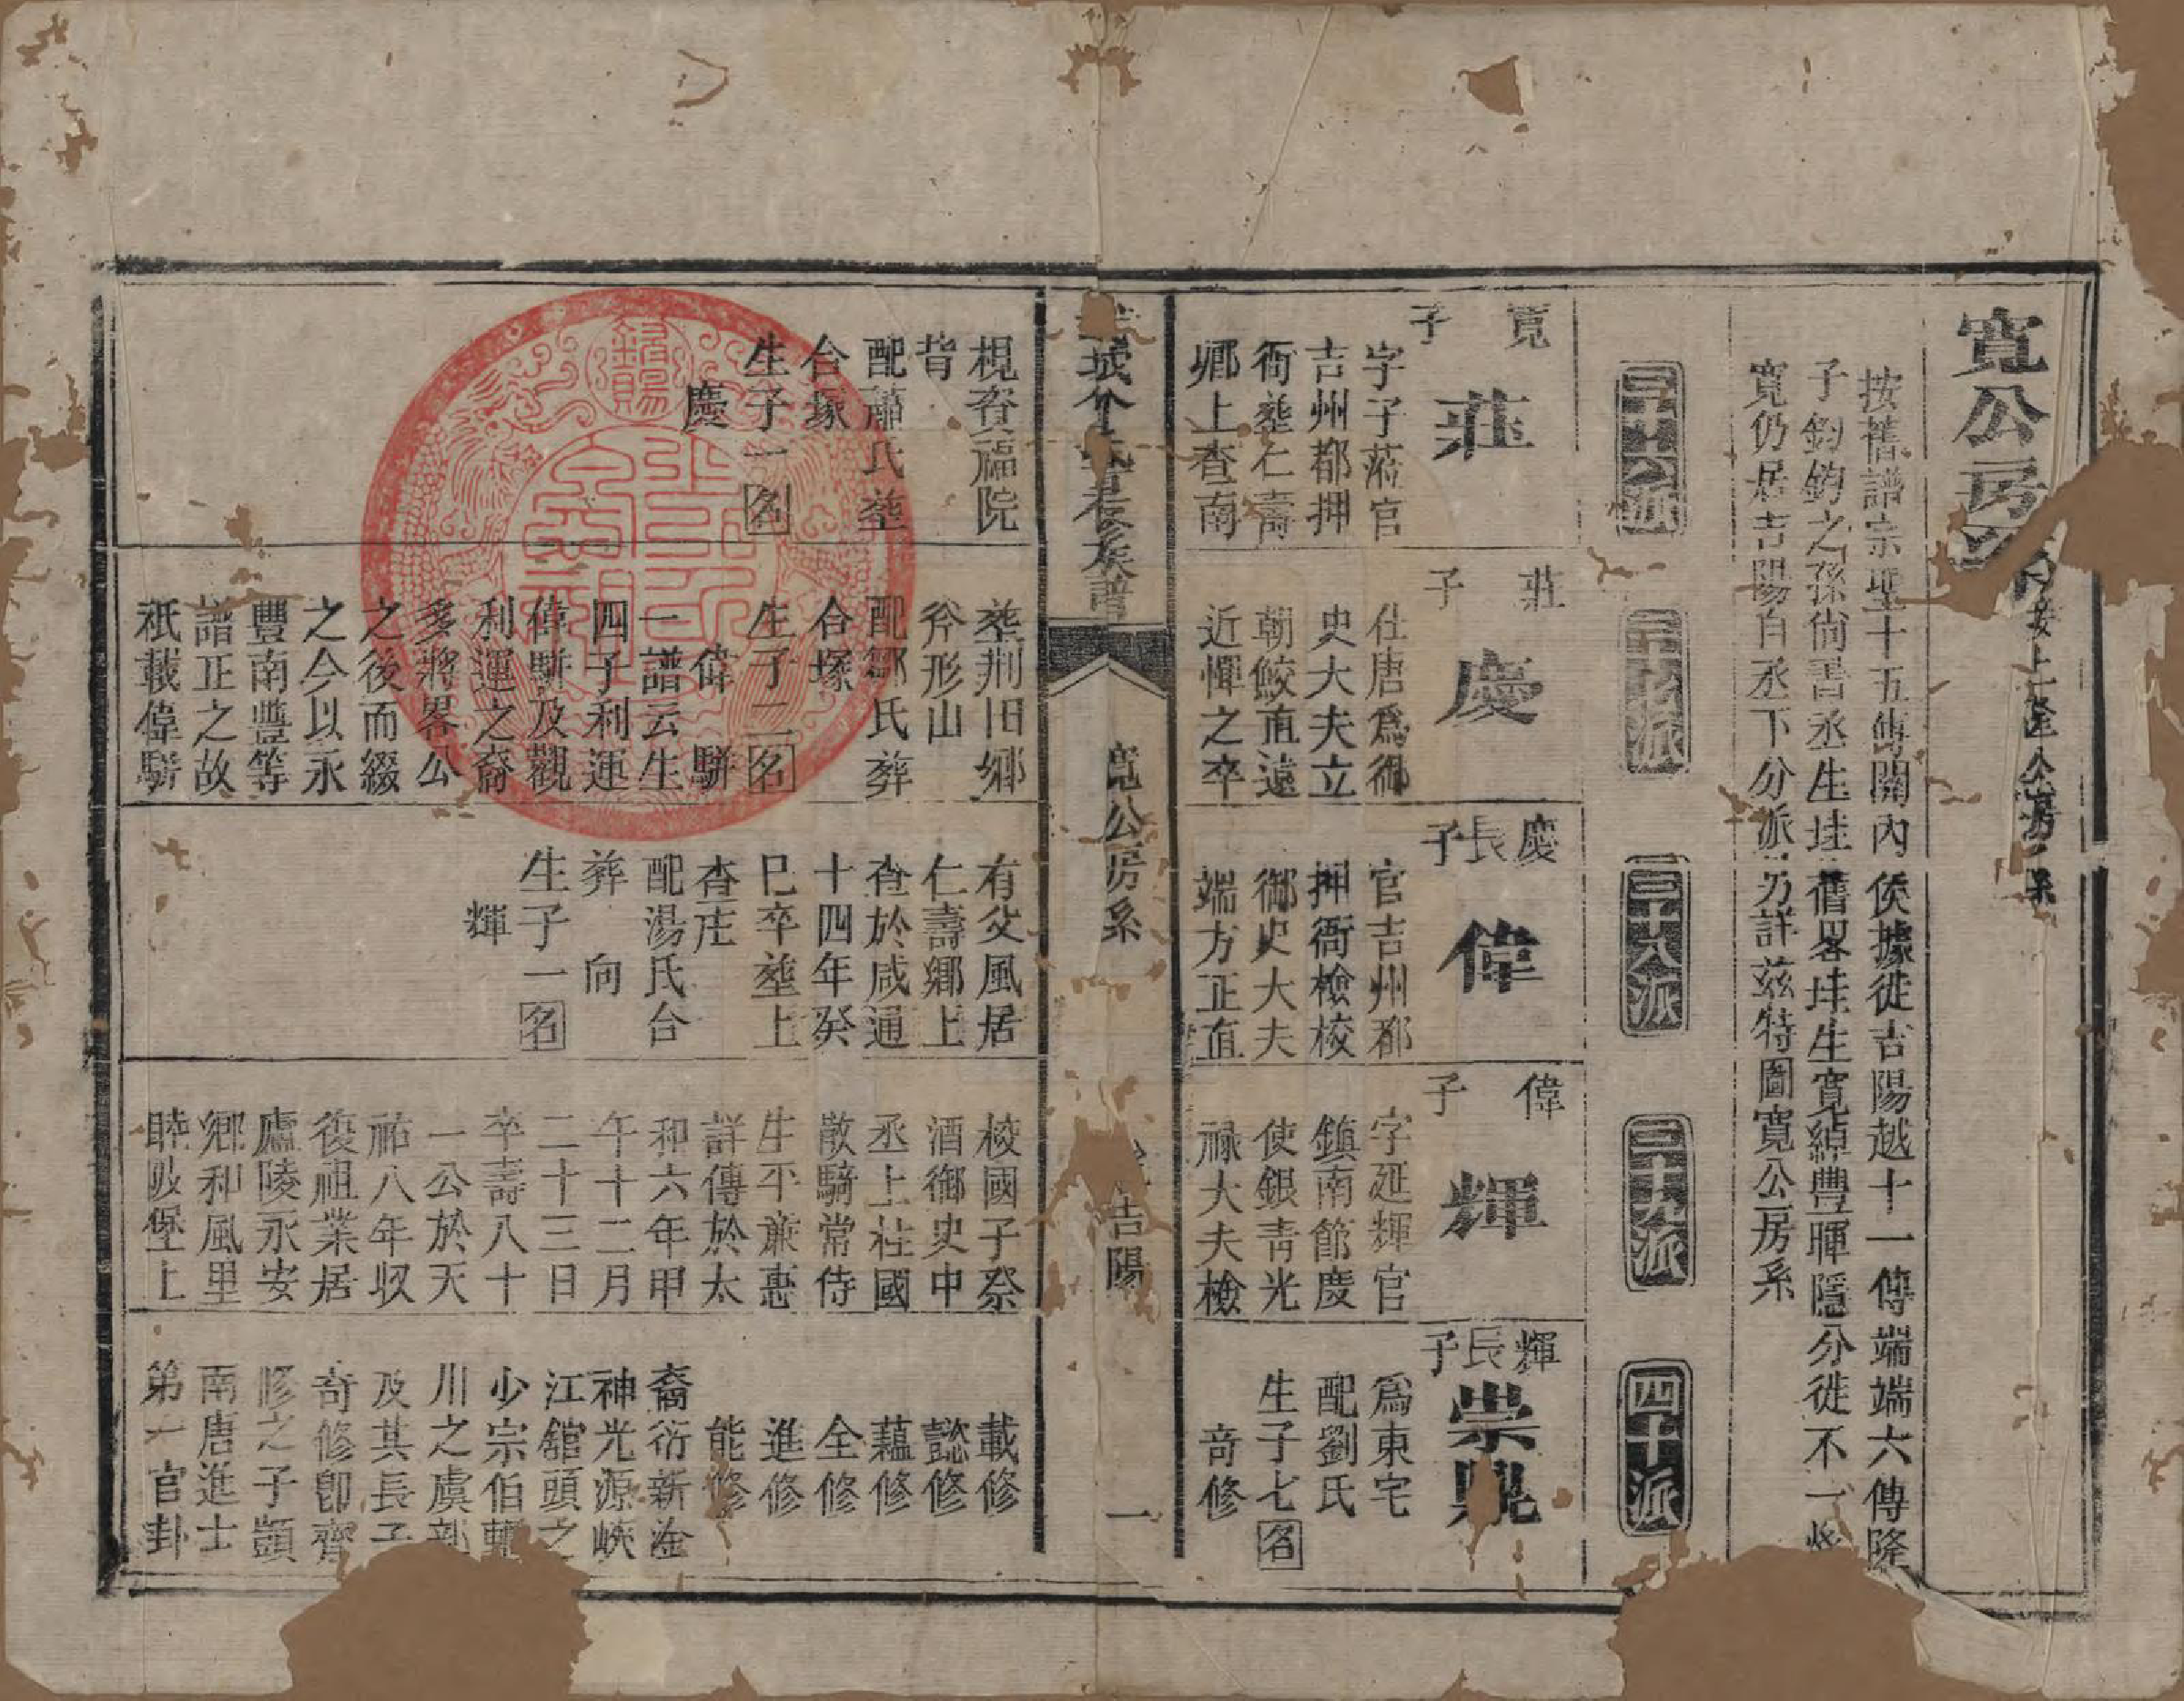 寬公房
按舊譜宗聖十五傳關內侯據徙吉陽越十一傳端端六傳隆
子鈞鈞之孫尚書丞生珪舊畧珪生寬綽豐暉隱分徙不一
寬仍居吉陽自丞下分派另詳茲特圖寬公房系
三十六派
三十七派
三十八派
三十九派
四十派
寬子
莊
字子蒞官
吉州都押
衙塟仁壽
鄉上査南
梘資福院
背
配蕭氏塟
合塚
生子一名
慶
莊子
慶
仕唐爲御
史大夫立
朝鯁直遠
近憚之卒
塟荆旧鄉
斧形山
配鄒氏葬
合塚
生子二名
偉 騈
一譜云生
四子利運
偉騈及觀
利運之裔
多將畧公
之後而綴
之今以永
豐南豐等
譜正之故
祇載偉騈
慶長子
偉
官吉州都
押衙檢校
御史大夫
端方正直
有父風居
仁壽鄉上
査於咸通
十四年癸
巳卒塟上
査庄
配湯氏合
葬 向
生子一名
輝
偉子
輝
字延輝官
鎮南節度
使銀青光
祿大夫檢
校國子祭
酒御史中
丞上柱國
散騎常侍
生平㢘惠
詳傳於太
和六年甲
午十二月
二十三日
卒壽八十
一公於天
祐八年収
復祖業居
廬陵永安
鄉和風里
睦陂堡上
輝長子
崇
爲東宅
配劉氏
生子七名
奇修
載修
懿修
蘊修
全修
進修
能修
裔衍新淦
神光源峽
江舘頭之
少宗伯
川之虞部
及其長子
奇修卽齊
修之子顗
南唐進士
第一官卦
城 族譜
寬公房系
吉陽
一